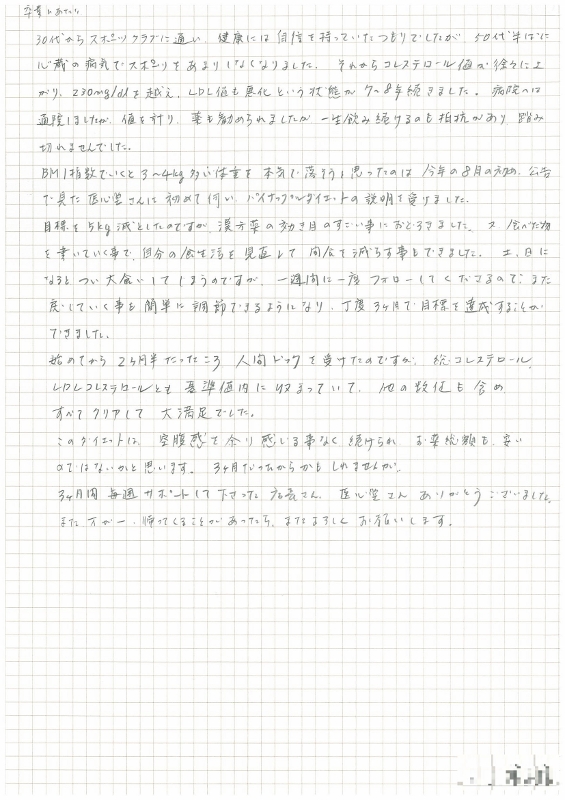 卒業にあたり
30代からスポーツクラブに通い、健康には自信を持っていたつもりでしたが、50代半ばに
心臓の病気でスポーツをあまりしなくなりました。それからコレステロール値が徐々に上
がり、230mg/dlを越え、LDL値も悪化という状態が7~8年続きました。病院へは
通院しましたが、値を計り、薬も勧められましたが一生飲み続けるのも抵抗があり踏み
切れませんでした。
BMI指数でいくと3~4kg多い体重を本気で落そうと思ったのは今年の8月の初め、公告
で見た医心堂さんに初めて伺い、バイナップルダイエットの説明を受けました。
目標を5kg減としたのですが、漢方薬の効き目のすごい事におどろきました。又、食べた物
を書いていく事で、自分の食生活を見直して間食を減らす事もできました。土、日に
なるとつい大食いしてしまうのですが、一週間に一度フォローしてくださるので、また
戻していく事も簡単に調節できるようになり、丁度3ヶ月で目標を達成することが
できました。
始めてから2ヶ月半たったころ人間ドックを受けたのですが、総コレステロール、
LDLコレステロールとも基準値内に収まっていて、他の数値も含め、
すべてクリアして大満足でした。
このダイエットは、空腹感を余り感じる事なく続けられ、お薬総額も、安い
のではないかと思います。3ヶ月だったからかもしれませんが。
3ヶ月間毎週サポートして下さった店長さん、医心堂さんありがとうございました。
また、万が一、帰ってくることがあったら、またよろしくお願いします。